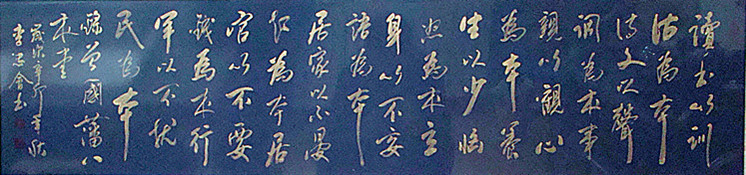 讀書以訓
詁為本
詩文以聲
調為本事
親以觀心
為本養
生以少惱
怒為本立
身以不妄
語為本
居家以不晏
起為本居
官以不要
錢為本行
軍以不扰
民為本
錄曾國藩八
本堂
歲次辛卯年秋